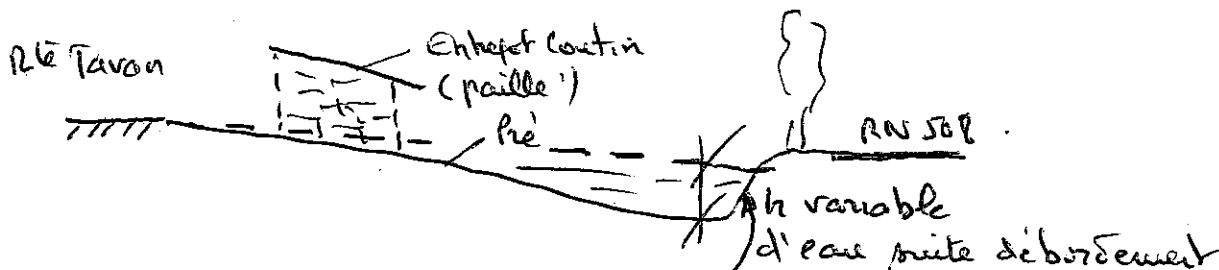 Rte Tavan
Entrepôt Coutin
(paille)
Pré
RN 508.
h variable
d'eau suite débordement